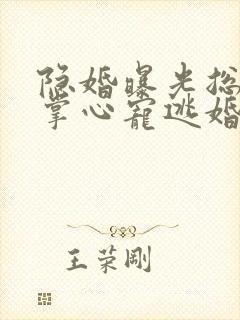 隐婚曝光总
掌心宠逃婚
王荣刚